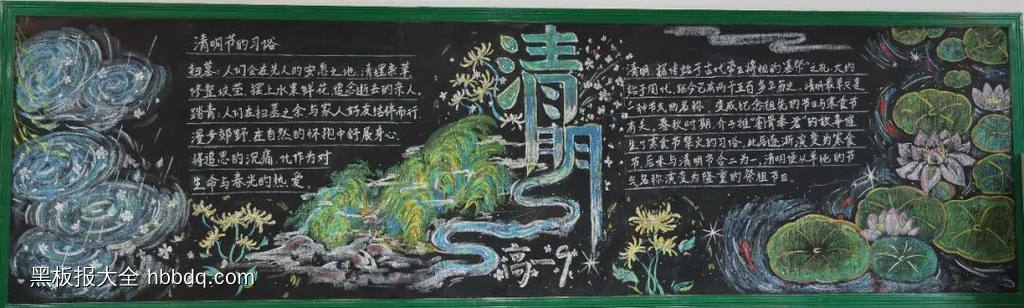 清明节的习俗
扫墓:人们会在先人的安息之地,清理杂草
修整坟茔,摆上水果鲜花,追念逝去的亲人
踏青:人们在扫墓之余与家人好友结伴而行
漫步郊野,在自然的怀抱中舒展身心
将追思的沉痛,化作为对
生命与春光的热爱。
清明
清明,据传始于古代帝王将相的墓祭之礼,大约
始于周代,距今已有两千五百多年历史,清明最早只是
一种节气的名称,变成纪念祖先的节日与寒食节
有关。春秋时期,介子推"割骨奉君"的故事催
生了寒食节祭火的习俗,此后逐渐演变为寒食
节,后来与清明节合二为一,清明便从单纯的节
气名称演变为隆重的祭祖节日。
高一.9
黑板报大全 hbbdq.com